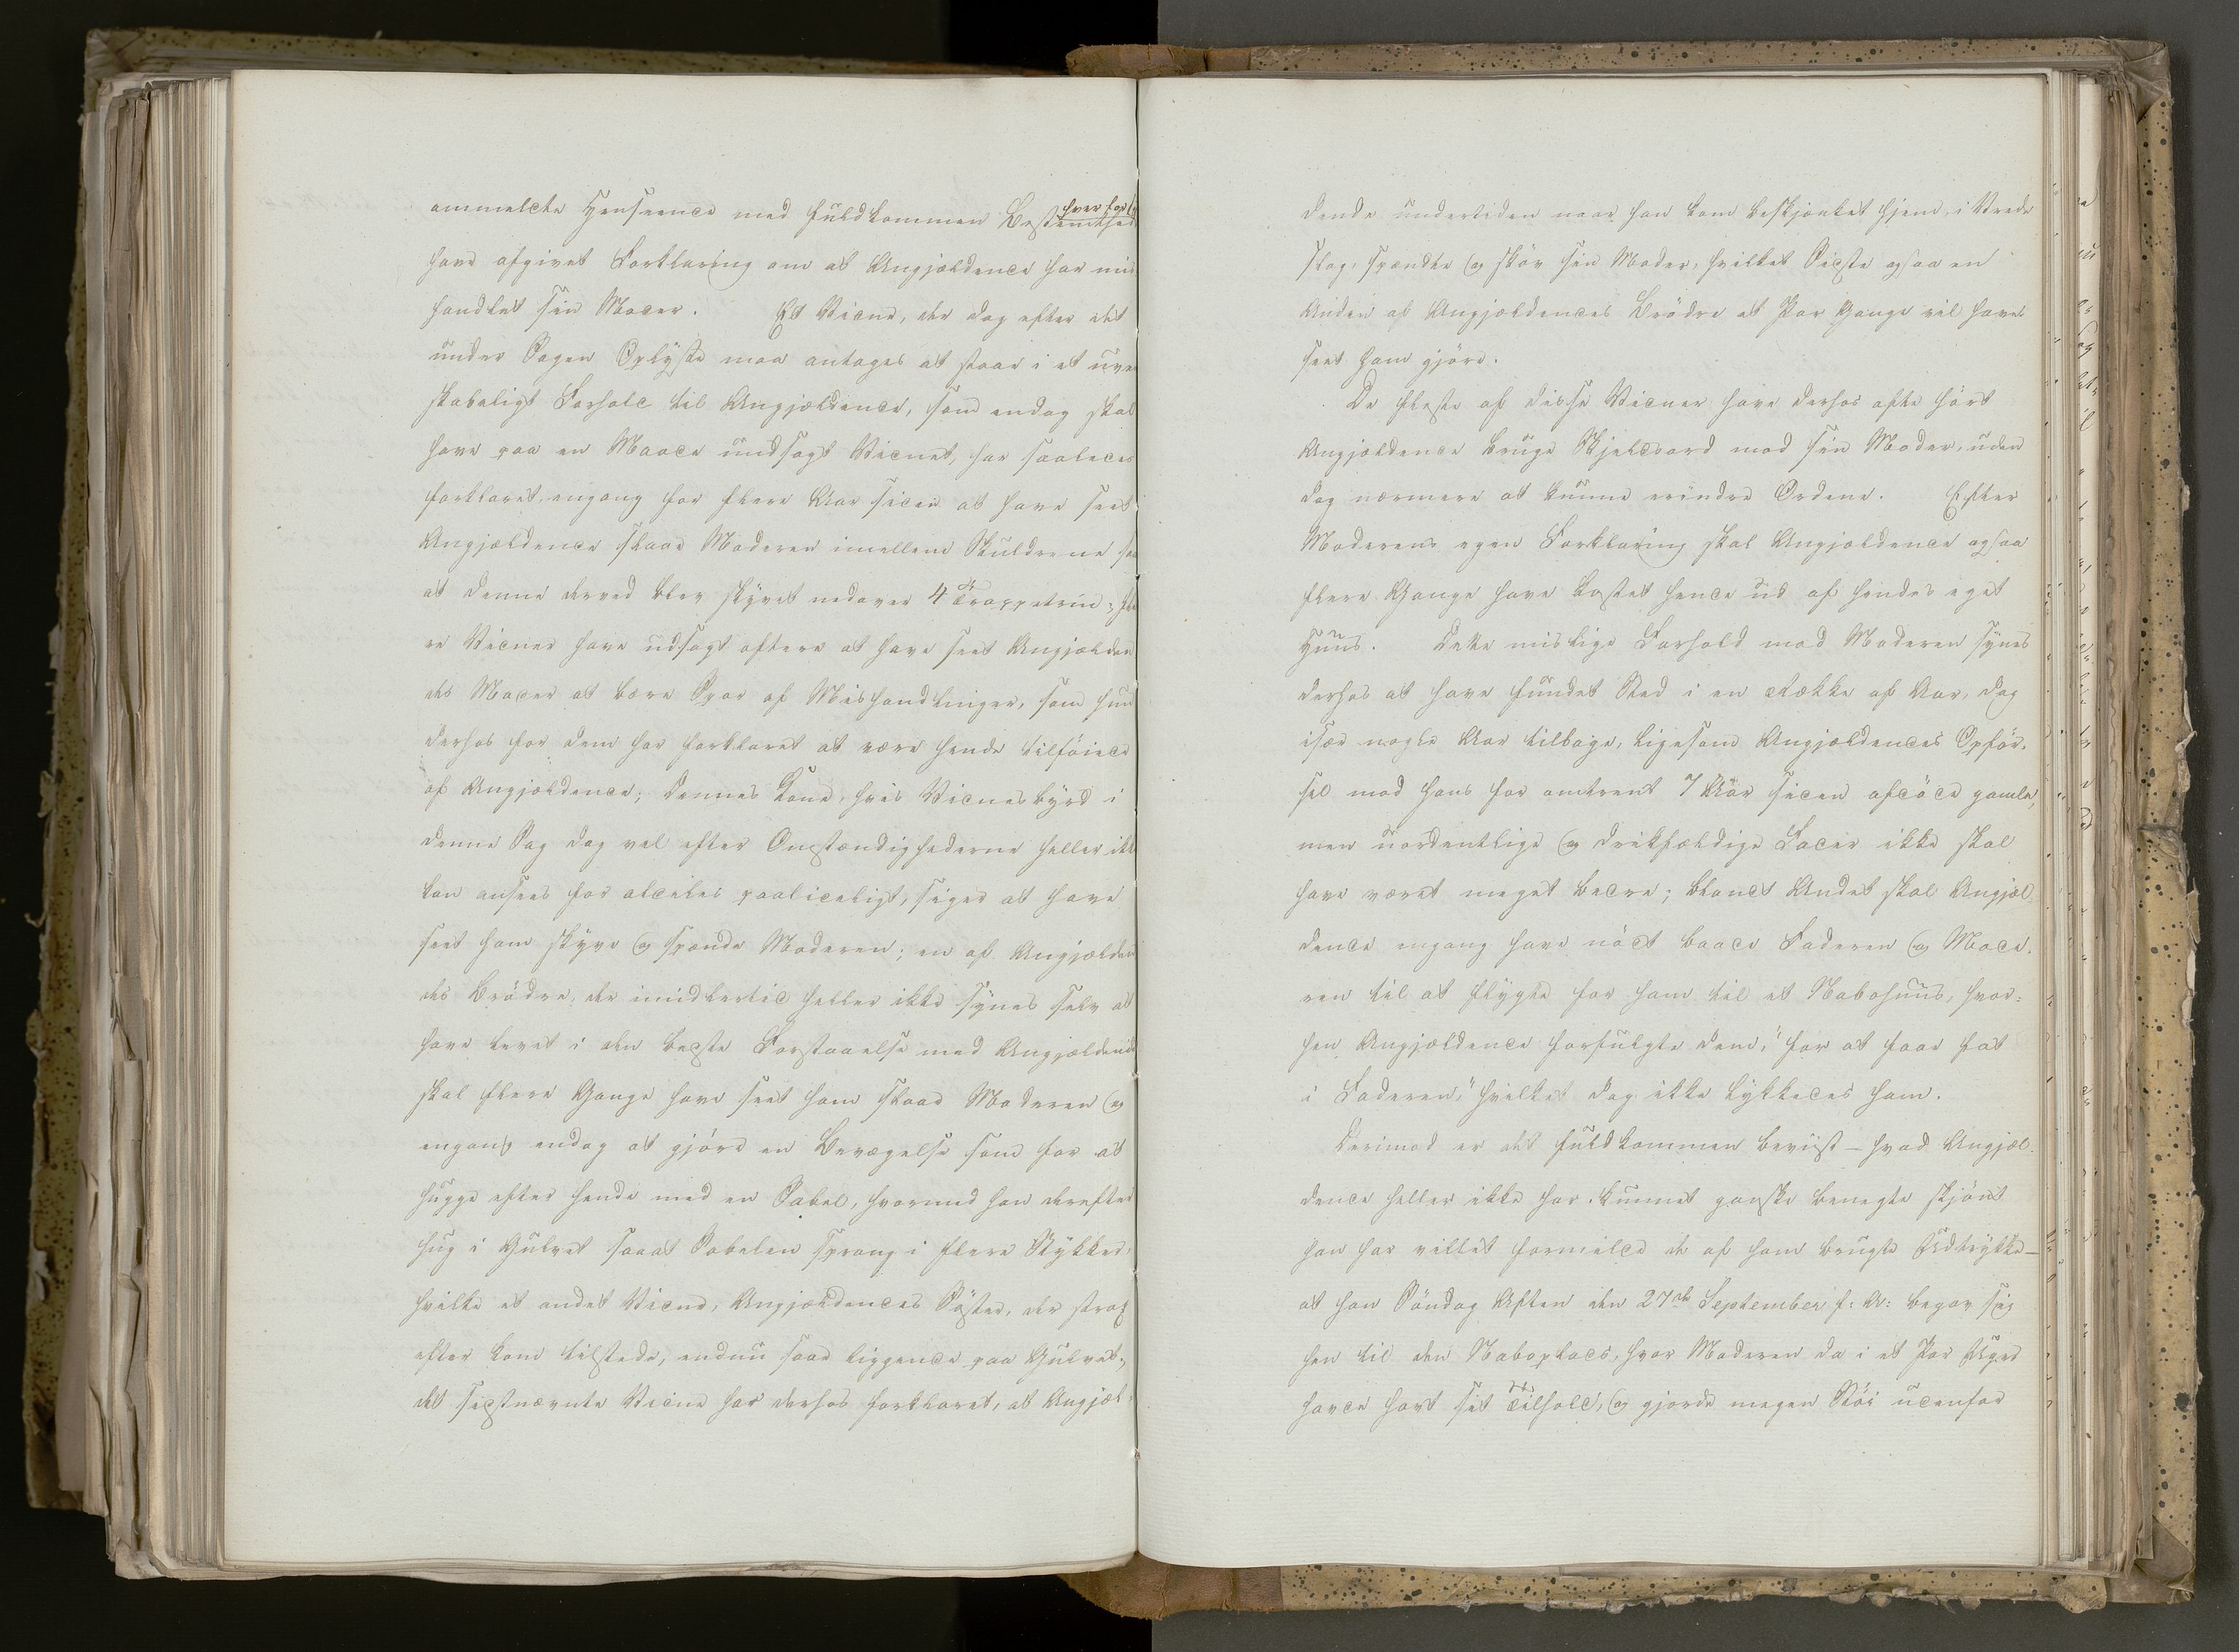 ommeldte Henseende med fuldkommen Bestemthed hver for sig
have afgivet Forklaring om at Angjældende har mis
handlet sin Moder. Et Vidne, der dog efter det
under Sagen Oplyste maa antages at staae i et uven
skabeligt Forhold til Angjældende, som endog skal
have paa en Maade undsagt Vidnet, har saaledes
forklaret engang for flere Aar siden at have seet
Angjældende slaae Moderen imellem Skuldrene saa
at denne derved blev skyvet nedover 4 Trappetrin; fle
re Vidner have udsagt oftere at have seet Angjælden
des Moder at bære Spor af Mishandlinger, som hun
derhos for dem har forklaret at være hende tilföiede
af Angjældende; dennes Kone, hvis Vidnesbyrd i
denne Sag dog vel efter Omstændighederne heller ikke
kan ansees for aldeles paalideligt, siger at have
seet ham skyve og spænde Moderen; en af Angjælden
des Brödre, der imidlertid heller ikke synes selv at
have levet i den bedste Forstaaelse med Angjældende
skal flere Gange have seet ham slaae Moderen og
engang endog at gjöre en Bevægelse som for at
hugge efter hende med en Sabel, hvormed han derefter
hug i Gulvet saaat Sabelen sprang i flere Stykker,
hvilke et andet Vidne, Angjældendes Söster, der strax
efter kom tilstede, endnu saae liggende paa Gulvet;
det sidstnævnte Vidne har derhos forklaret, at Angjæl-
dende undertiden naar han kom beskjænket hjem, i Vrede
slog, spændte og sköv sin Moder, hvilket Sidste ogsaa en
Anden af Angjældendes Brödre et Par Gange vil have
seet ham gjöre.
De fleste af disse Vidner have derhos ofte hört
Angjældende bruge Skjeldsord mod sin Moder, uden
dog nærmere at kunne erindre Ordene. Efter
Moderens egen Forklaring skal Angjældende ogsaa
flere Gange have kastet hende ud af hendes eget
Huus. Dette mislige Forhold mod Moderen synes
derhos at have fundet Sted i en Række af Aar, dog
især nogle Aar tilbage, ligesom Angjældendes Opför-
sel mod hans for omtrent 7 Aar siden afdöde gamle,
men uordentlige og drikfældige Fader ikke skal
have været meget bedre; blandt Andet skal Angjæl
dende engang have nödt baade Faderen og Mode-
ren til at flygte for ham til et Nabohuus, hvor-
hen Angjældende forfulgte dem, "for at faae fat
i Faderen," hvilket dog ikke lykkedes ham.
Derimod er det fuldkommen beviist – hvad Angjæl-
dende heller ikke har kunnet ganske benegte skjönt
han har villet formilde de af ham brugte Udtrykke –
at han Söndag Aften den 27de September f: A: begav sig
hen til den Naboplads, hvor Moderen da i et Par Uger
havde havt sit Tilhold, og gjorde megen Stöi udenfor